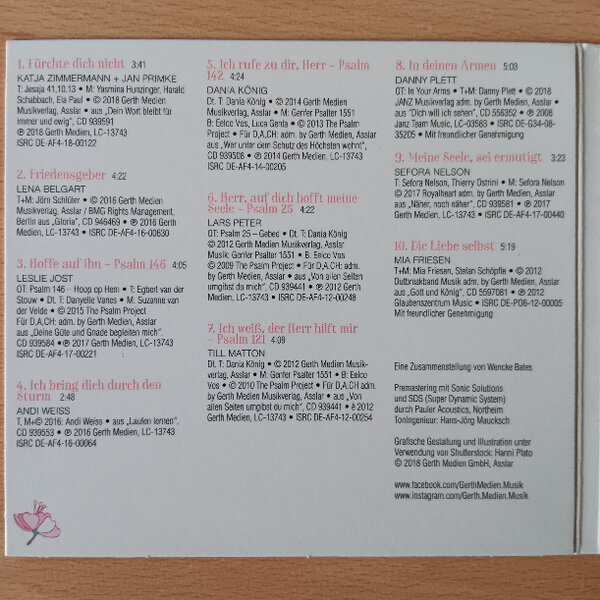 1. Fürchte dich nicht 3:41
KATJA ZIMMERMANN + JAN PRIMKE
T: Jesaja 41,10.13 • M: Yasmina Hunzinger, Harald
Schabbach, Ela Paul • © 2018 Gerth Medien
Musikverlag, Asslar • aus „Dein Wort bleibt für
immer und ewig“, CD 939591
℗ 2018 Gerth Medien, LC-13743
ISRC DE-AF4-18-00122
2. Friedensgeber 4:22
LENA BELGART
T+M: Jörn Schlüter • © 2016 Gerth Medien
Musikverlag, Asslar / BMG Rights Management,
Berlin aus „Gloria“, CD 946469 • ℗ 2016 Gerth
Medien, LC-13743 • ISRC DE-AF4-16-00630
3. Hoffe auf ihn – Psalm 146 4:05
LESLIE JOST
OT: Psalm 146 – Hoop op Hem • T: Egbert van der
Stouw • Dt. T: Danyelle Vanes • M: Suzanne van
der Velde • © 2015 The Psalm Project
Für D,A,CH: adm. by Gerth Medien, Asslar
aus „Deine Güte und Gnade begleiten mich“, CD
939584 • ℗ 2017 Gerth Medien, LC-13743
ISRC DE-AF4-17-00221
4. Ich bring dich durch den
Sturm 2:48
ANDI WEISS
T, M+© 2016: Andi Weiss • aus „Laufen lernen“,
CD 939553 • ℗ 2016 Gerth Medien, LC-13743
ISRC DE-AF4-16-00064
5. Ich rufe zu dir, Herr – Psalm
142 4:24
DANIA KÖNIG
Dt. T: Dania König • © 2014 Gerth Medien
Musikverlag, Asslar • M: Genfer Psalter 1551
B: Eelco Vos, Luca Genta • © 2013 The Psalm
Project • Für D,A,CH: adm. by Gerth Medien,
Asslar • aus „Wer unter dem Schutz des Höchsten wohnt“,
CD 939508 • ℗ 2014 Gerth Medien, LC-13743
ISRC DE-AF4-14-00205
6. Herr, auf dich hofft meine
Seele – Psalm 25 4:22
LARS PETER
OT: Psalm 25 – Gebed • Dt. T: Dania König
© 2012 Gerth Medien Musikverlag, Asslar
Musik: Genfer Psalter 1551 • B: Eelco Vos
© 2009 The Psalm Project • Für D,A,CH:
adm. by Gerth Medien, Asslar • aus „Von allen Seiten
umgibst du mich“, CD 939441 • ℗ 2012 Gerth
Medien, LC-13743 • ISRC DE-AF4-12-00248
7. Ich weiß, der Herr hilft mir
– Psalm 121 4:09
TILL MATTON
Dt. T: Dania König • © 2012 Gerth Medien Musik-
verlag, Asslar • M: Genfer Psalter 1551 • B: Eelco
Vos • © 2010 The Psalm Project • Für D,A,CH adm.
by Gerth Medien, Asslar • aus „Von
allen Seiten umgibst du mich“, CD 939441 • ℗ 2012
Gerth Medien, LC-13743 • ISRC DE-AF4-12-00254
8. In deinen Armen 5:03
DANNY PLETT
OT: In Your Arms • T+M: Danny Plett • © 2018
JANZ Musikverlag adm. by Gerth Medien, Asslar •
aus „Dich will ich sehen“, CD 556352 • ℗ 2008
Janz Team Music, LC-03583 • ISRC DE-G34-08-
35205 • Mit freundlicher Genehmigung
9. Meine Seele, sei ermutigt 3:23
SEFORA NELSON
T: Sefora Nelson, Thierry Ostrini • M: Sefora Nelson
© 2017 Royalheart adm. by Gerth Medien, Asslar •
aus „Näher, noch näher“, CD 939581 • ℗ 2017
Gerth Medien, LC-13743 • ISRC DE-AF4-17-00440
10. Die Liebe selbst 5:19
MIA FRIESEN
T+M: Mia Friesen, Stefan Schöpfle • © 2012
Outbreakband Musik adm. by Gerth Medien, Asslar
aus „Gott und König“, CD 5597081 • ℗ 2012
Glaubenszentrum Music • ISRC DE-PD8-12-00005
Mit freundlicher Genehmigung
Eine Zusammenstellung von Wencke Bates
Premastering mit Sonic Solutions
und SDS (Super Dynamic System)
durch Pauler Acoustics, Northeim
Toningenieur: Hans-Jörg Maucksch
Grafische Gestaltung und Illustration unter
Verwendung von Shutterstock: Hanni Plato
© 2018 Gerth Medien GmbH, Asslar
www.facebook.com/GerthMedien.Musik
www.instagram.com/Gerth.Medien.Musik